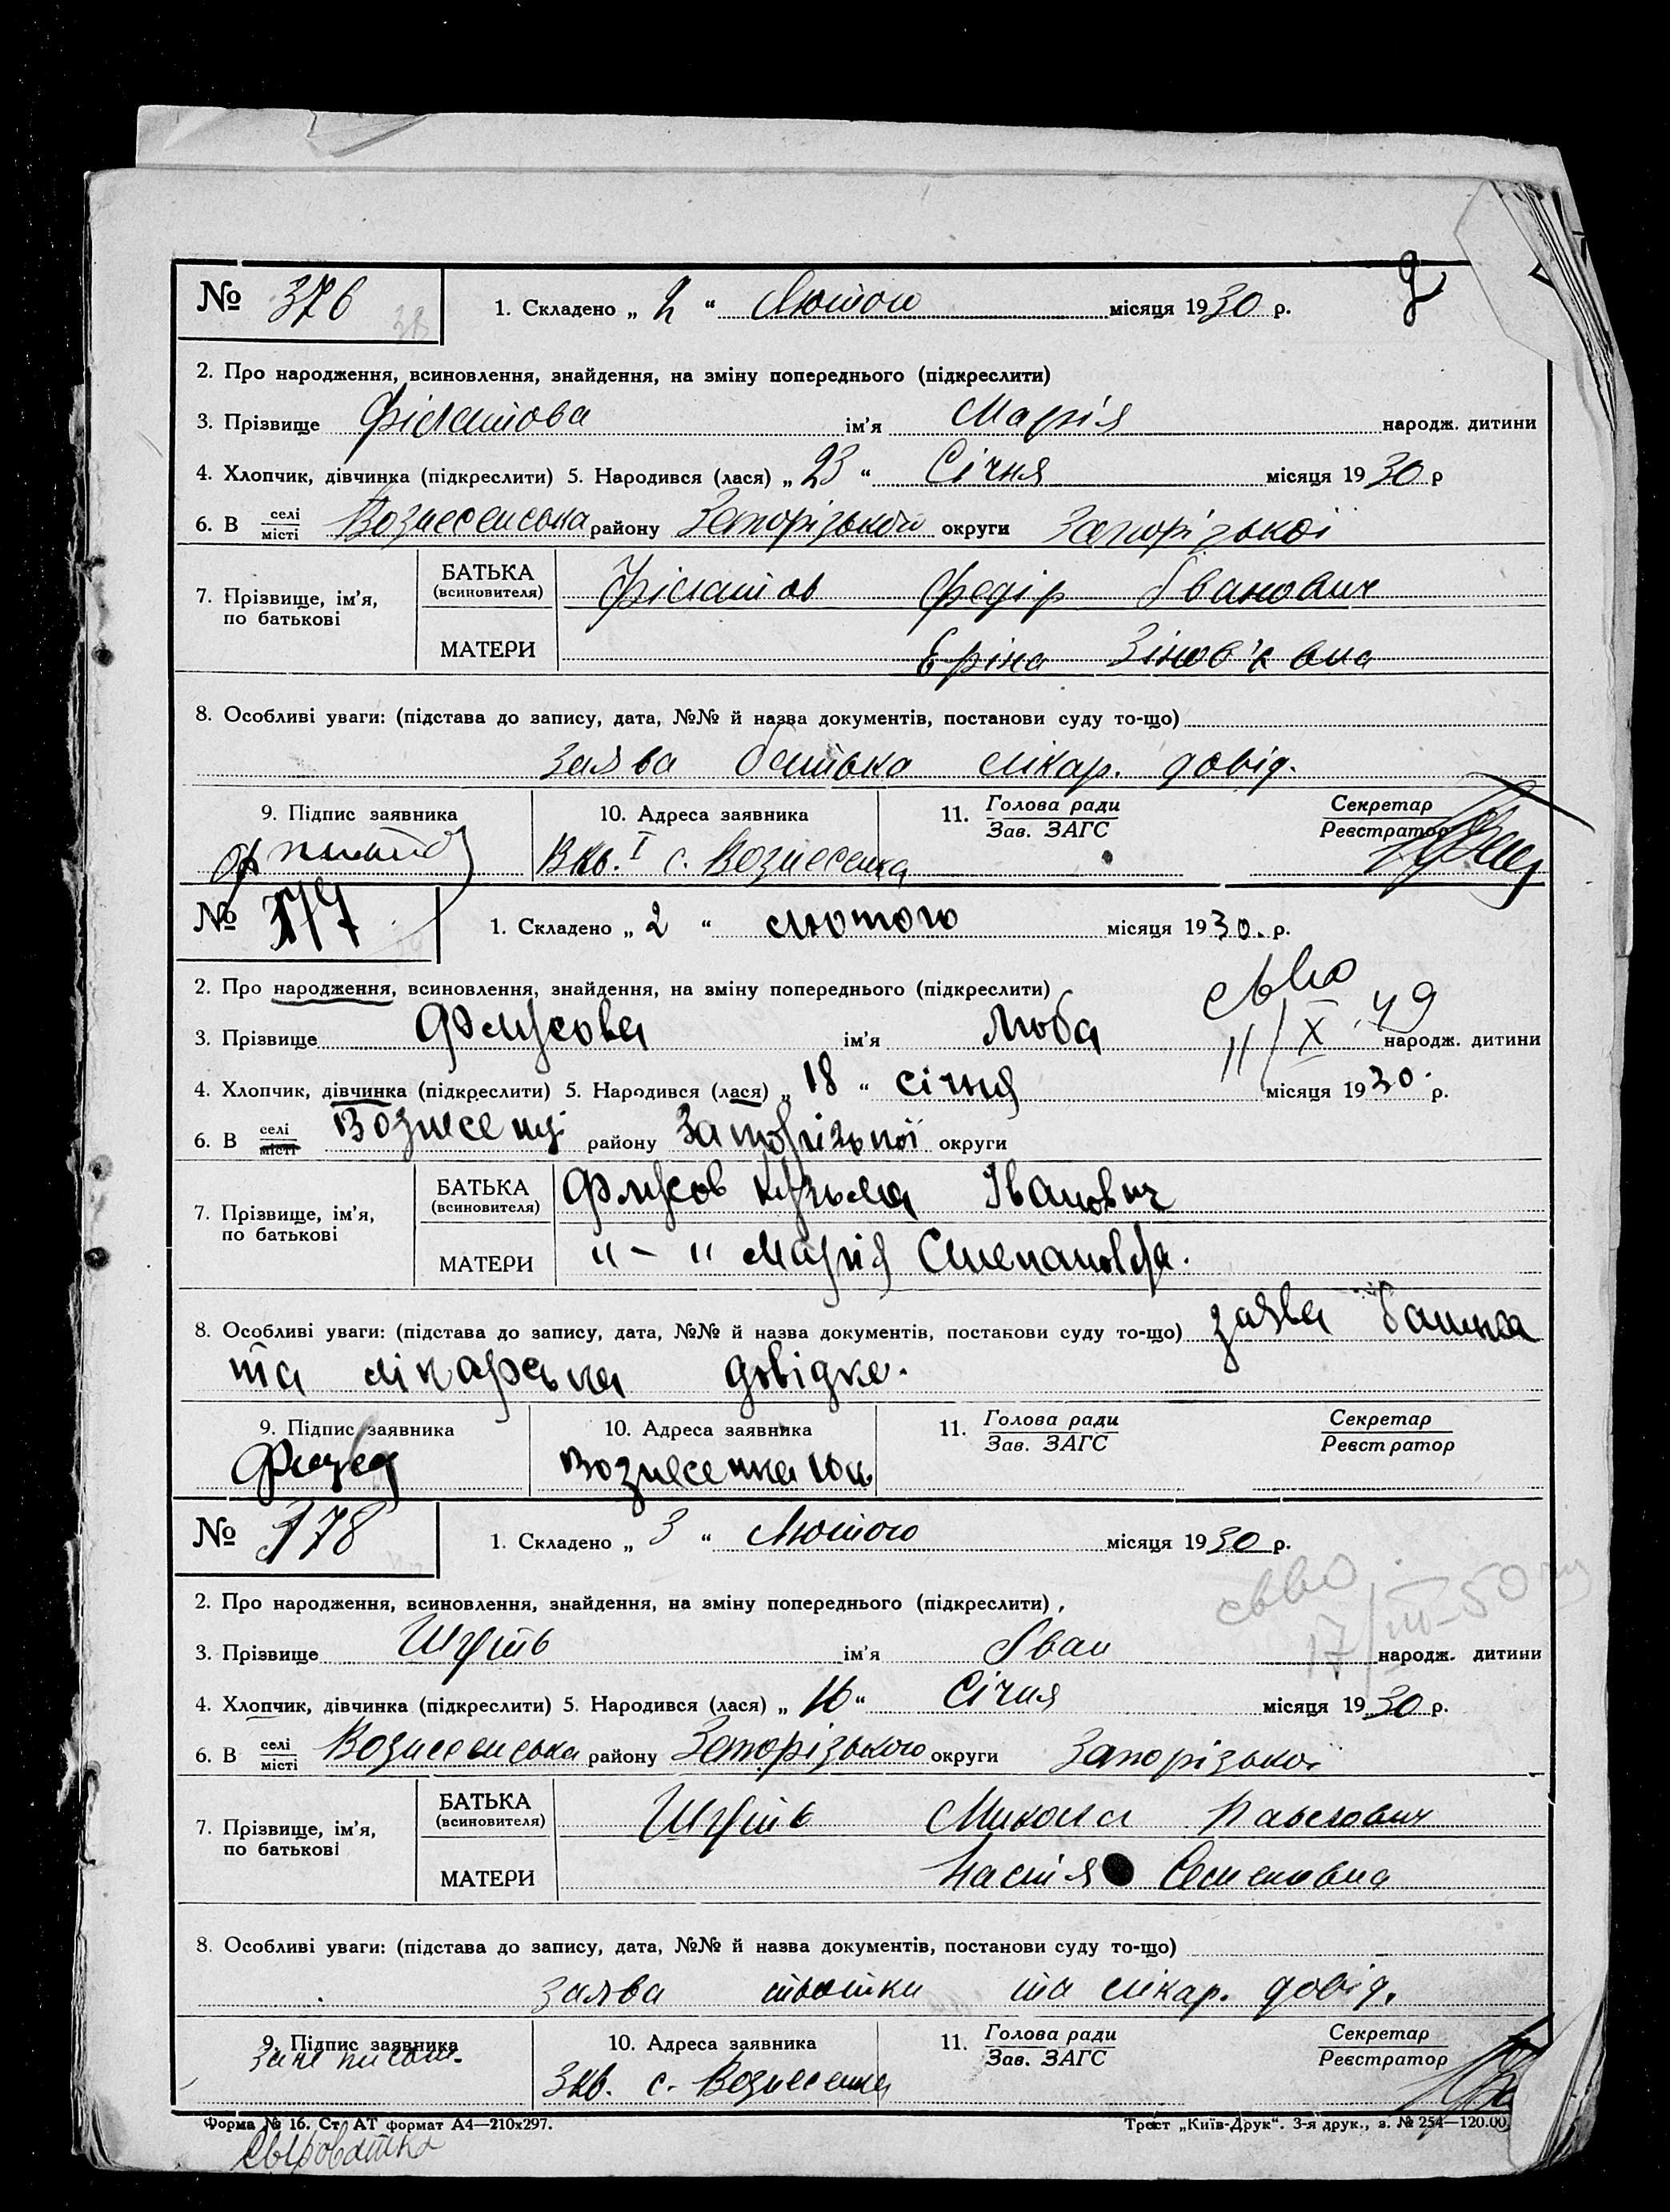 № 376
1. Складено „ 2 “ Лютого місяця 1930 р.
2. Про народження, всиновлення, знайдення, на зміну попереднього (підкреслити)
3. Прізвище Філатова ім’я Марія народж. дитини
4. Хлопчик, дівчинка (підкреслити) 5. Народився (лася) „ 23 “ Січня місяця 1930 р
6. В селі місті Вознесенська району Запорізького округи Запорізької
7. Прізвище, ім’я, по батькові
БАТЬКА (всиновителя) Філатов Федір Іванович
МАТЕРИ Єріна Зінов'євна
8. Особливі уваги: (підстава до запису, дата, №№ й назва документів, постанови суду то-що)
заява батька лікар. довід.
9. Підпис заявника 10. Адреса заявника 11. Голова ради Зав. ЗАГС Секретар Реєстратор
Вкв. I с. Вознесенка
№ 177
1. Складено „ 2 “ лютого місяця 1930. р.
2. Про народження, всиновлення, знайдення, на зміну попереднього (підкреслити)
3. Прізвище ім’я Люба народж. дитини
11/X 49
4. Хлопчик, дівчинка (підкреслити) 5. Народився (лася) „ 18 “ січня місяця 1930 р.
6. В селі місті району Запорізької округи
7. Прізвище, ім’я, по батькові
БАТЬКА (всиновителя) Кузьма Іванович
МАТЕРИ "–" Марія Степановна.
8. Особливі уваги: (підстава до запису, дата, №№ й назва документів, постанови суду то-що) заява батька
та лікарська довідка.
9. Підпис заявника 10. Адреса заявника 11. Голова ради Зав. ЗАГС Секретар Реєстратор
Вознесенка
№ 178
1. Складено „ 3 “ Лютого місяця 1930 р.
2. Про народження, всиновлення, знайдення, на зміну попереднього (підкреслити),
17/III–50
3. Прізвище Шуть ім’я Іван народж. дитини
4. Хлопчик, дівчинка (підкреслити) 5. Народився (лася) „ 16 “ Січня місяця 1930 р.
6. В селі місті Вознесенська району Запорізького округи Запорізької
7. Прізвище, ім’я, по батькові
БАТЬКА (всиновителя) Шуть Микола Павлович
МАТЕРИ Настія Семеновна
8. Особливі уваги: (підстава до запису, дата, №№ й назва документів, постанови суду то-що)
заява тьотки та лікар. довід.
9. Підпис заявника 10. Адреса заявника 11. Голова ради Зав. ЗАГС Секретар Реєстратор
3 кв. с. Вознесенка
Форма № 16. Ст. АТ формат А4—210х297.
Трест „Київ-Друк“. 3-я друк., з. № 254—120.00